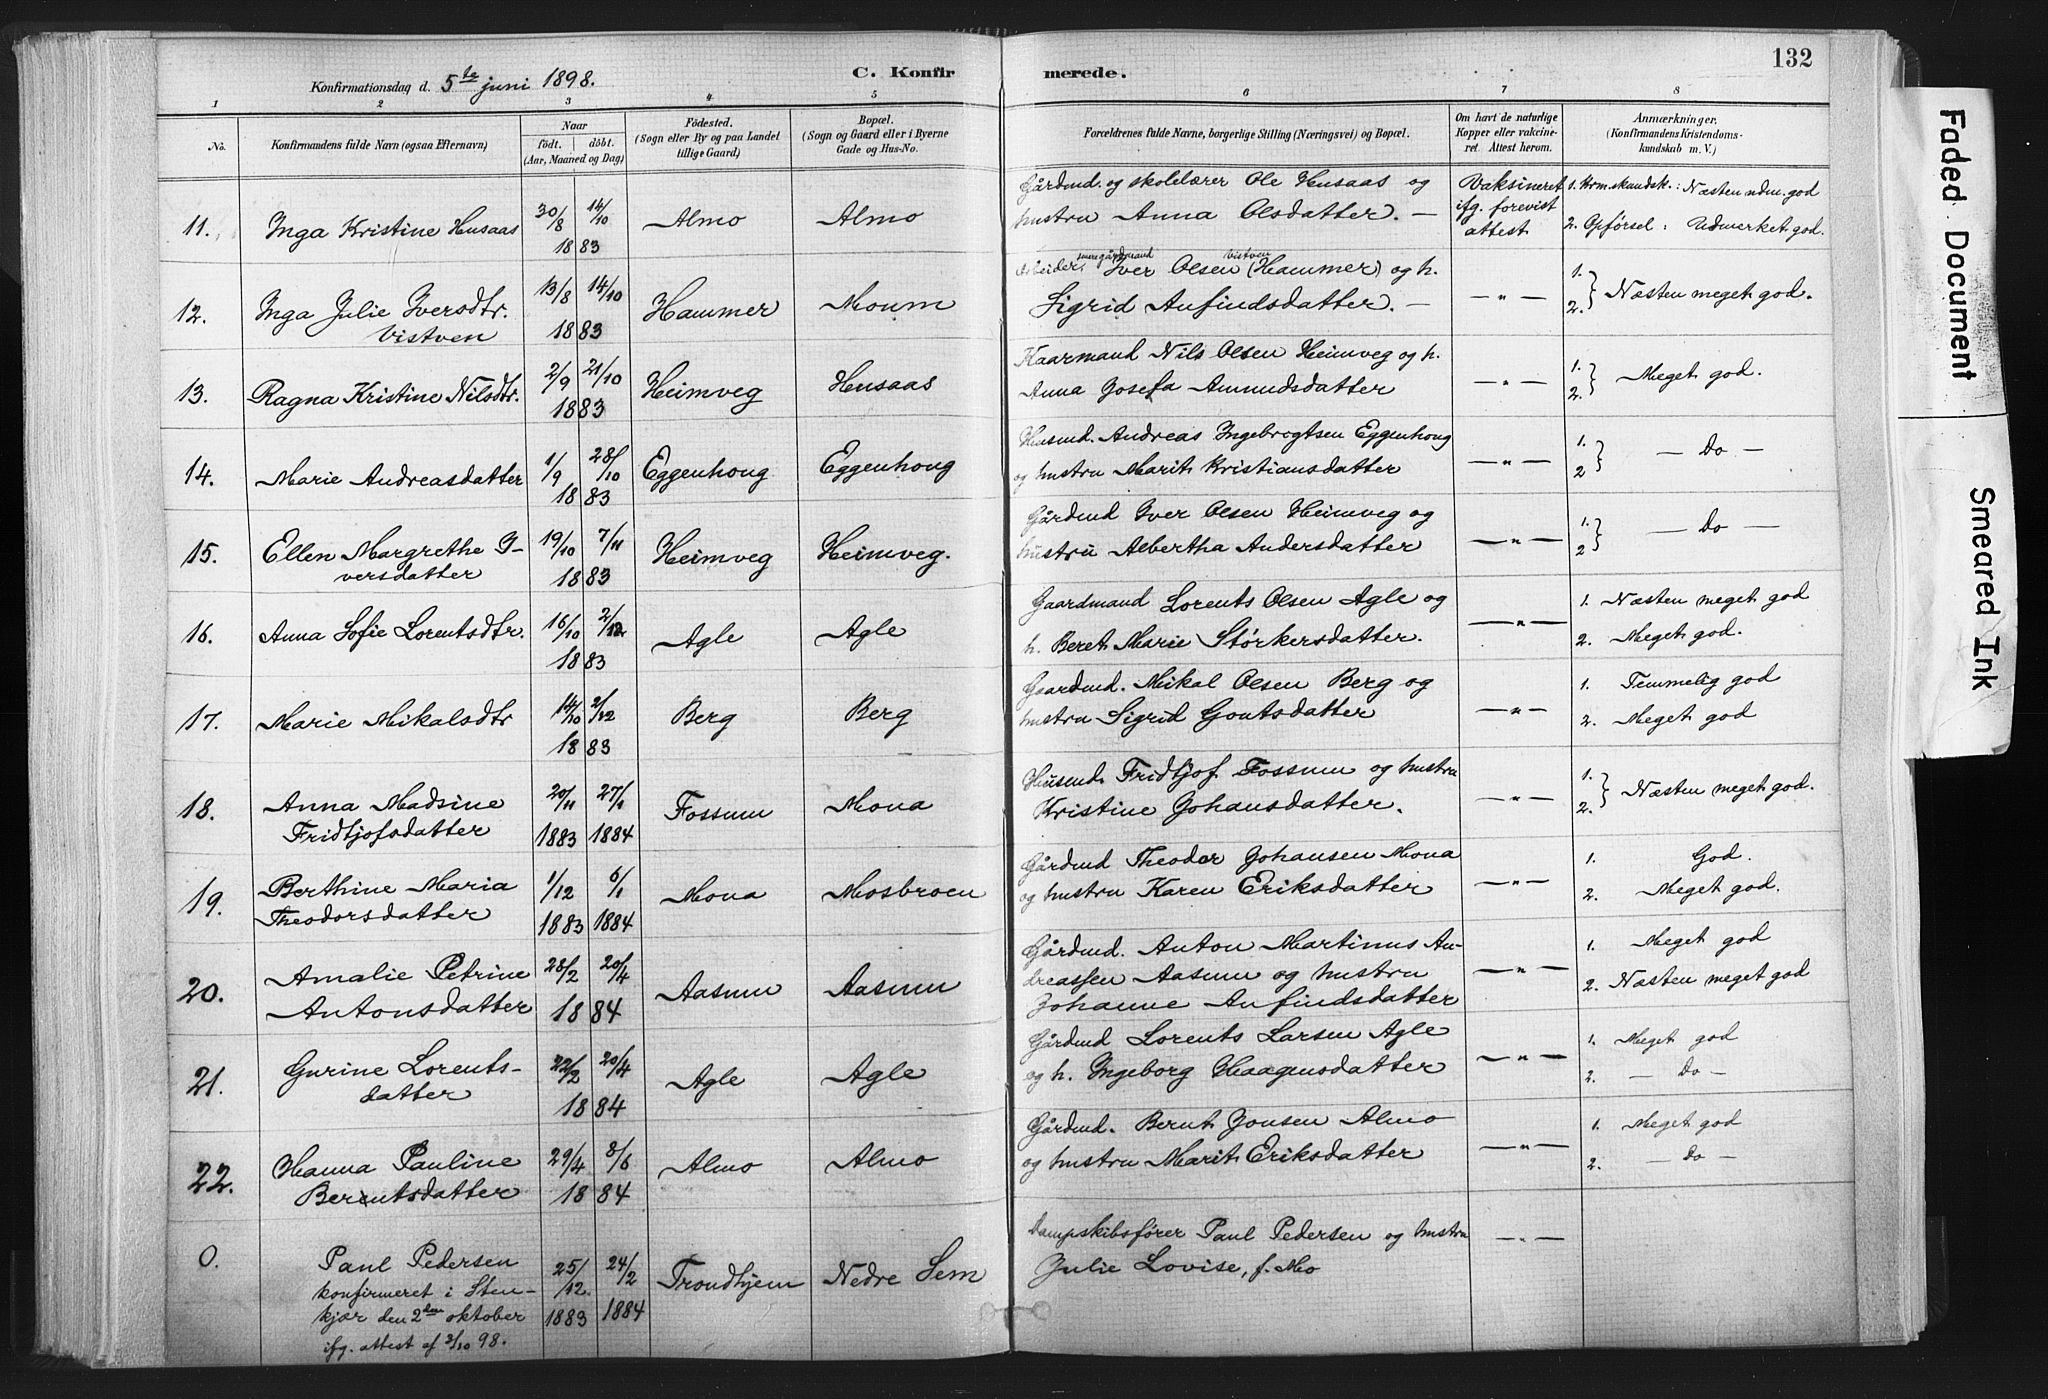 132
C. Konfirmerede.
Konfirmationsdag d. 5te juni 1898.
1 2 3 4 5 6 7 8
No.
Konfirmandens fulde Navn (ogsaa Efternavn)
Naar
født. døbt.
(Aar, Maaned og Dag)
Fødested.
(Sogn eller By og paa Landet
tillige Gaard)
Bopæl.
(Sogn og Gaard eller i Byerne
Gade og Hus-No.
Forældrenes fulde Navne, borgerlige Stilling (Næringsvei) og Bopæl.
Om havt de naturlige
Kopper eller vaccine-
ret. Attest herom.
Anmærkninger,
(Konfirmandens Kristendoms-
kundskab m. V.)
11. Inga Kristine Husaas 30/8 14/10 1883 Almo Almo
Gårdmd. og skolelærer Ole Husaas og
hustru Anna Olsdatter. —
Vaksineret
ifg. forevist
attest
1. Krm.skundsk.: Næsten udm. god
2. Opførsel: Udmerket god.
12. Inga Julie Iversdtr.
Vistven
13/8 14/10 1883 Hammer Moum
Arbeider, gårdmand Iver Olsen Vistven (Hammer) og h.
Sigrid Anfindsdatter. —
— " —
1. 2. } Næsten meget god.
13. Ragna Kristine Nilsdtr. 2/9 21/10 1883 Heimveg Husaas
Kaarmand Nils Olsen Heimveg og h.
Anna Josefa Amundsdatter
— " —
1. 2. } Meget god.
14. Marie Andreasdatter 1/9 28/10 1883 Eggenhoug Eggenhoug
Husmd. Andreas Ingebrogtsen Eggenhoug
og hustru Marit Kristiansdatter
— " —
1. 2 } — Do —
15. Ellen Margrethe I-
versdatter
19/10 7/11 1883 Heimveg Heimveg.
Gårdmd Iver Olsen Heimveg og
hustru Albertha Andersdatter
— " —
1. 2 } — Do —
16. Anna Sofie Lorentsdtr. 16/10 2/12 1883 Agle Agle
Gaardmand Lorents Olsen Agle og
h. Beret Marie Størkersdatter.
— " —
1. Næsten meget god
2. Meget god.
17. Marie Mikalsdtr 14/10 2/12 1883 Berg Berg
Gaardmd. Mikal Olsen Berg og
hustru Sigrid Goutsdatter
— " —
1. Temmelig god
2. Meget god
18. Anna Madsine
Fridtjofsdatter
20/11 27/1 1883 1884 Fossum Mona
Husmd. Fridtjof Fossum og hustru
Kristine Johansdatter.
— " —
1. 2. } Næsten meget god.
19. Berthine Maria
Theodorsdatter
1/12 6/1 1883 1884 Mona Mosbroen
Gårdmd Theodor Johansen Mona
og hustru Karen Eriksdatter
— " —
1. God.
2. Meget god.
20. Amalie Petrine
Antonsdatter
28/2 20/4 1884 Aasum Aasum
Gårdmd. Anton Martinus An-
dreassen Aasum og hustru
Johanne Anfindsdatter
— " —
1. Meget god
2. Næsten meget god
21. Gurine Lorents-
datter
22/2 20/4 1884 Agle Agle
Gårdmd Lorents Larsen Agle
og h. Ingeborg Haagensdatter
— " —
1. Meget god
2. — Do —
22. Hanna Pauline
Berentsdatter
29/4 8/6 1884 Almo Almo
Gårdmd. Bernt Jonsen Almo
og hustru Marit Eriksdatter
— " —
1. Meget god
2. — Do —
0. Paul Pedersen
konfirmeret i Sten-
kjær den 2den oktober
ifg. attest af 3/10 98.
25/12 24/2 1883 1884 Trondhjem Nedre Sem
Dampskibsfører Paul Pedersen og hustru
Julie Lovise, f. Mo
— " —
Faded Document
Smeared Ink